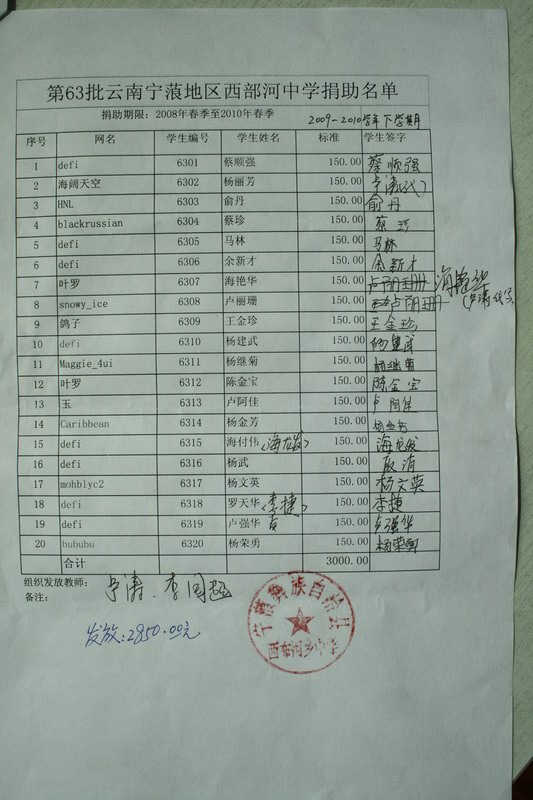 第63批云南宁蒗地区西部河中学捐助名单
捐助期限：2008年春季至2010年春季 2009-2010学年下学期
序号 网名 学生编号 学生姓名 标准 学生签字
1 defi 6301 蔡顺强 150.00 蔡顺强
2 海阔天空 6302 杨丽芳 150.00 卢涛(代)
3 HNL 6303 俞丹 150.00 俞丹
4 blackrussian 6304 蔡珍 150.00 蔡珍
5 defi 6305 马林 150.00 马林
6 defi 6306 余新才 150.00 余新才
7 叶罗 6307 海艳华 150.00 海艳华
8 snowy_ice 6308 卢丽珊 150.00
9 鸽子 6309 王金珍 150.00 王金珍
10 defi 6310 杨建武 150.00 杨建武
11 Maggie_4ui 6311 杨继菊 150.00 杨继菊
12 叶罗 6312 陈金宝 150.00 陈金宝
13 玉 6313 卢阿佳 150.00 卢阿佳
14 Caribbean 6314 杨金芳 150.00
15 defi 6315 海付伟(海龙发) 150.00 海龙发
16 defi 6316 杨武 150.00 取消
17 mohblyc2 6317 杨文英 150.00 杨文英
18 defi 6318 罗天华(李捷) 150.00 李捷
19 defi 6319 卢强华 150.00 卢强华
20 bububu 6320 杨荣勇 150.00 杨荣勇
合计 3000.00
组织发放教师： 卢涛、李国
备注：
发放:2850.00元
宁蒗彝族自治县
西布河乡中学